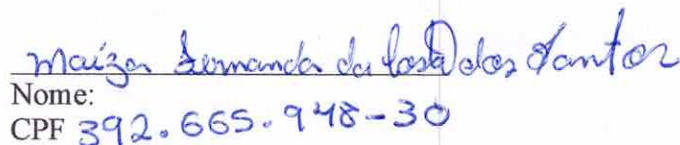 Maíza Fernanda da Costa dos Santos
Nome:
CPF 392.665.948-30